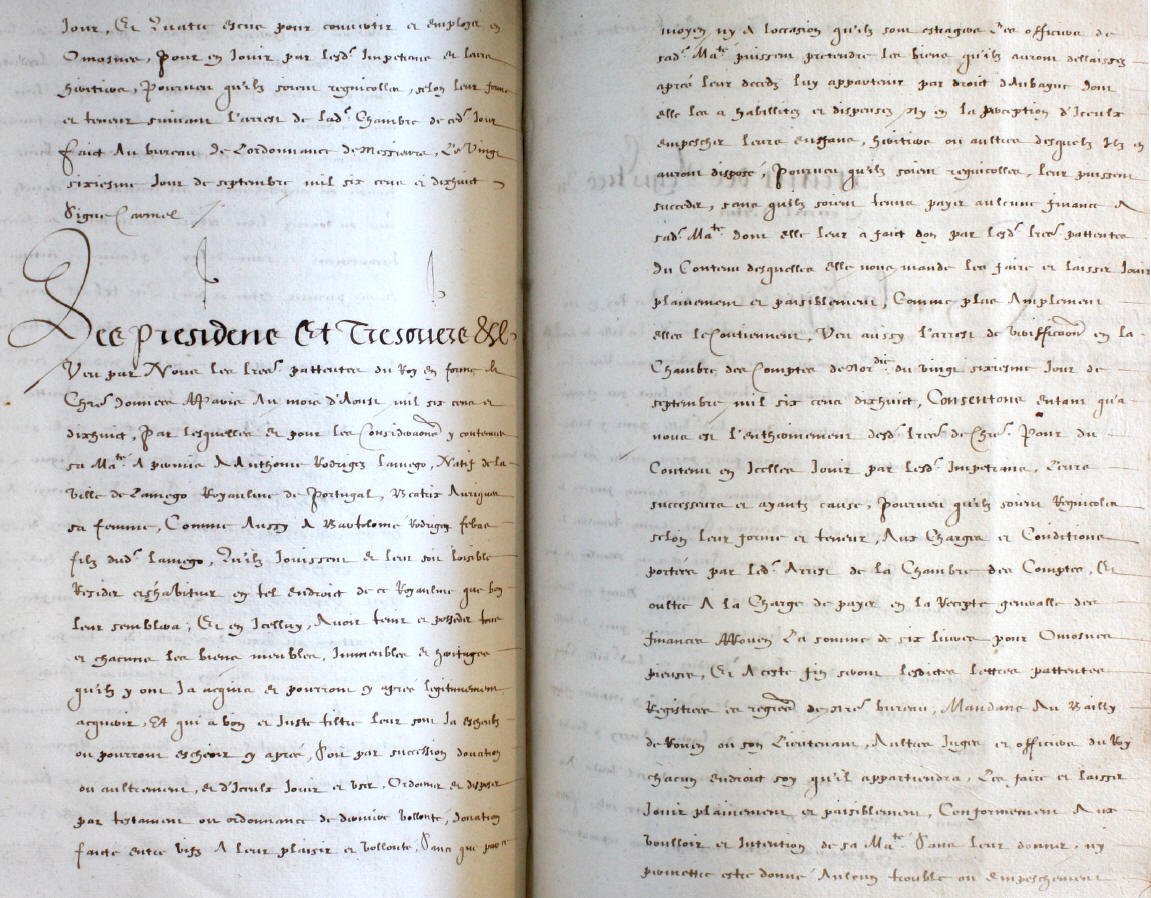 Jour, Et Quatre escus pour convertir et employer en
Omosnes, Pour en Jouir par lesd. Impetrans et leurs
heritiers, Pourveu qu'ilz soient regnicolles, selon leur forme
et teneur suivant l'arrest de lad. Chambre de ced. Jour
Faict Au bureau de L'ordonnance de Messieurs, Le Vingt
sixiesme Jour de septembre mil six cens et dixhuict
Signe Carmel
Les Presidens Et Tresoriers &c
Veu par Nous les lres pattentes du Roy en forme de
Chre donnees A Paris Au mois d'Aoust mil six cens et
dixhuict, Par lesquelles et pour les Considerations y contenues
sa Mate A permis A Anthonie Rodrigez Lamego, Natif de la
Ville de Lamego Royaulme de Portugal, Beatrix
sa femme, Comme Aussy A Bartolome Rodrigez
filz dud. lamego, Qu'ilz Jouissent et leur soit loisible
Resider et habituer en tel endroict de ce Royaulme que bon
leur semblera, Et en Icelluy, Avoir tenir et posseder tous
et chacuns les biens meubles, Immeubles et heritages
qu'ilz y ont Ja acquis et pourront cy aprés legitimement
acquerir, Et qui à bon et Juste tiltre leur sont Ja escheuz
ou pourront escheoir cy aprés, Soit par succession donation
ou aultrement, et d'Iceulx Jouir et user, Ordonner et disposer
par testament ou ordonnance de derniere vollonté, donation
faicte entre vifz A leur plaisir et vollonté, Sans que
moyen ny A loccasion qu'ilz sont estragers Les officiers de
sad. Mate puissent pretendre les biens qu'ilz auront dellaissez
aprés leur deceds luy appartenir par droit d'Aubayne dont
elle les a habillitez et dispensez Ny en la perception d'Iceulx
empescher leurs enffans, heritiers ou aultres desquelz Ilz en
auront disposé, Pourveu qu'ilz soient regnicolles, leur puissent
succeder, sans qu'ilz soient tenus payer aulcune finance A
sad. Mate dont elle leur a faict don par lesd. lres pattentes
Du Contenu desquelles Elle nous mande les faire et laisser Jouir
plainement et paisiblement, Comme plus Amplement
elles le Contiennent, Veu aussy l'arrest de veriffication en la
Chambre des Comptes de Nordie du vingt sixiesme Jour de
septembre mil six cens dixhuict, Consentons entant qu'a
nous est l'entherinement desd. lres de Chre. Pour du
Contenu en Icelles Jouir par lesd. Impetrans, Leurs
successeurs et ayants cause, Pourveu qu'ilz soient Regnicoles
selon leur forme et teneur, Aux Charges et Conditions
portées par led. Arrest de la Chambre des Comptes, Et
oultre A la Charge de payer en la Recepte generalle des
finances A Rouen La somme de six livres pour Omosnes
pieuses, Et A ceste fin seront lesdictes lettres pattentes
Registrees es regres de nre bureau, Mandans Au Bailly
de Rouen ou son Lieutenant, Aultres Juges et officiers du Roy
chacun endroict soy qu'il appartiendra, Les faire et laisser
Jouir plainement et paisiblement, Conformement Aux
voulloir et Intention de sa Mate. Sans leur donner, ny
permettre estre donné Aulcun trouble ou empeschement